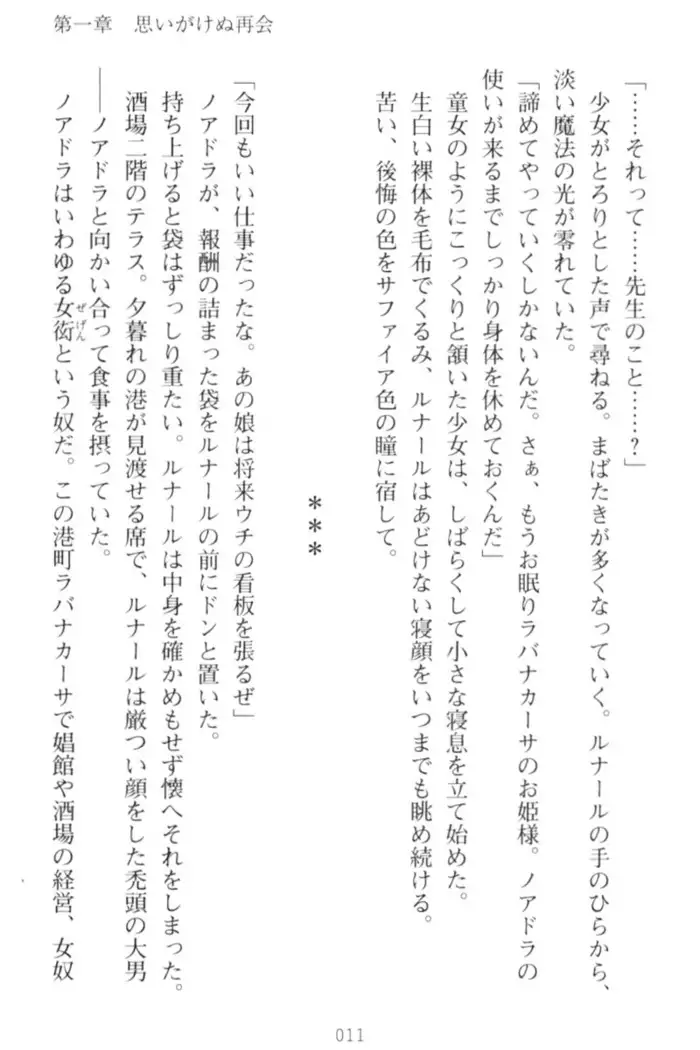 第一章　思いがけぬ再会
「……それって……先生のこと……？」
　少女がとろりとした声で尋ねる。まばたきが多くなっていく。ルナールの手のひらから、
淡い魔法の光が零れていた。
「諦めてやっていくしかないんだ。さぁ、もうお眠りラバナカーサのお姫様。ノアドラの
使いが来るまでしっかり身体を休めておくんだ」
　童女のようにこっくりと頷いた少女は、しばらくして小さな寝息を立て始めた。
　生白い裸体を毛布でくるみ、ルナールはあどけない寝顔をいつまでも眺め続ける。
　苦い、後悔の色をサファイア色の瞳に宿して。
＊＊＊
「今回もいい仕事だったな。あの娘は将来ウチの看板を張るぜ」
　ノアドラが、報酬の詰まった袋をルナールの前にドンと置いた。
　持ち上げると袋はずっしり重たい。ルナールは中身を確かめもせず懐へそれをしまった。
　酒場二階のテラス。夕暮れの港が見渡せる席で、ルナールは厳つい顔をした禿頭の大男
――ノアドラと向かい合って食事を摂っていた。
　ノアドラはいわゆる女衒ぜげんという奴だ。この港町ラバナカーサで娼館や酒場の経営、女奴
011